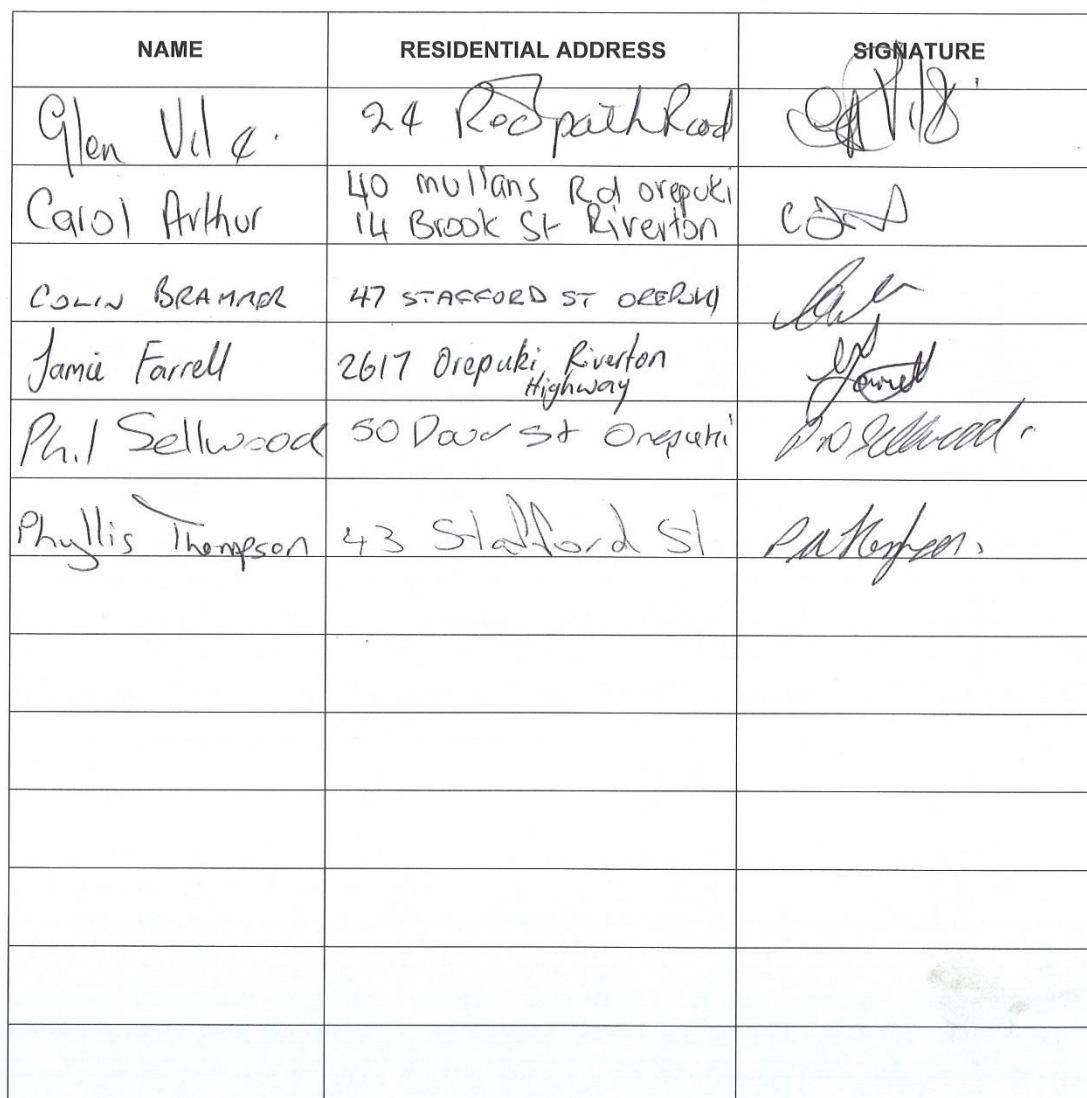 NAME RESIDENTIAL ADDRESS SIGNATURE
Glen 24 Redpath Road
Carol Arthur 40 mullans Rd orepuki
14 Brook St Riverton
COLIN BRAMMER 47 STAFFORD ST OREPUKI
Jamie Farrell 2617 Orepuki Riverton
Highway
Phil Sellwood 50 St Orepuki
Phyllis Thompson 43 Stafford St